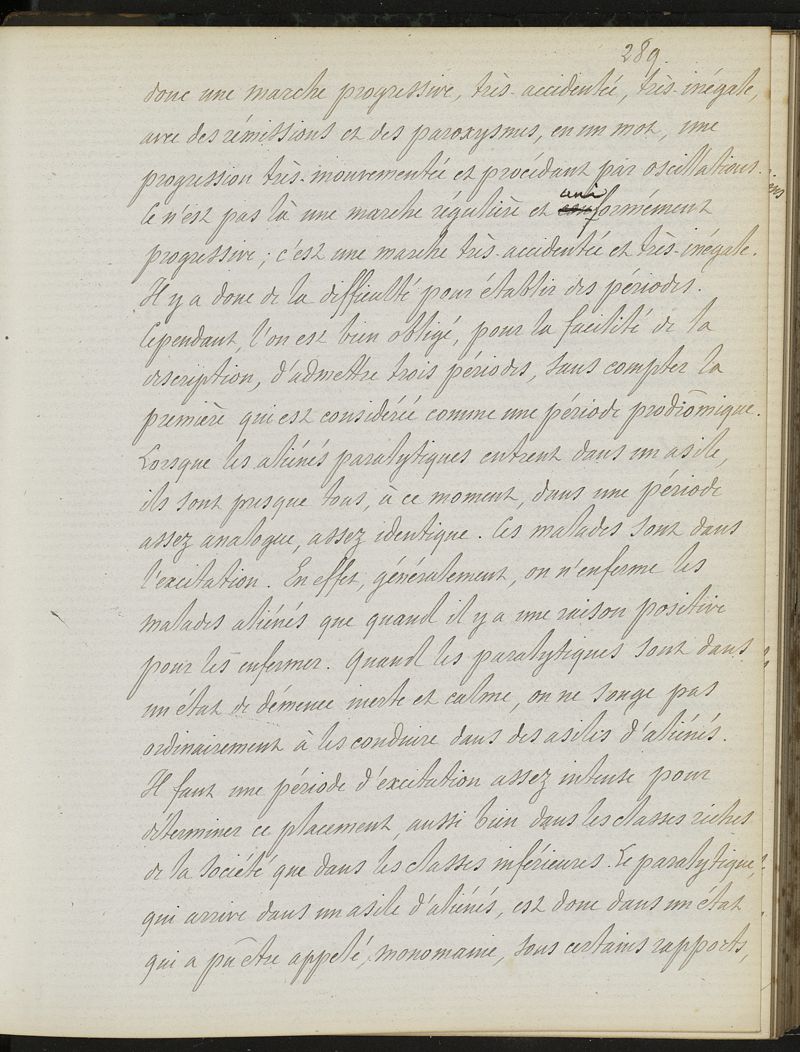 289.
donc une marche progressive, très-accidentée, très-inégale,
avec des rémissions et des paroxysmes, en un mot, une
progression très-mouvementée et procédant par oscillations.
Ce n'est pas là une marche régulière et uniformément
progressive; c'est une marche très-accidentée et très-inégale.
Il y a donc de la difficulté pour établir des périodes.
Cependant, l'on est bien obligé, pour la facilité de la
description, d'admettre trois périodes, sans compter la
première qui est considérée comme une période prodrômique.
Lorsque les aliénés paralytiques entrent dans un asile,
ils sont presque tous, à ce moment, dans une période
assez analogue, assez identique. Ces malades sont dans
l'excitation. En effet, généralement, on n'enferme les
malades aliénés que quand il y a une raison positive
pour les enfermer. Quand les paralytiques sont dans
un état de démence inerte et calme, on ne songe pas
ordinairement à les conduire dans des asiles d'aliénés.
Il faut une période d'excitation assez intense pour
déterminer ce placement, aussi bien dans les classes riches
de la société que dans les classes inférieures. Le paralytique,
qui arrive dans un asile d'aliénés, est donc dans un état
qui a pû être appelé, monomanie, sous certains rapports,